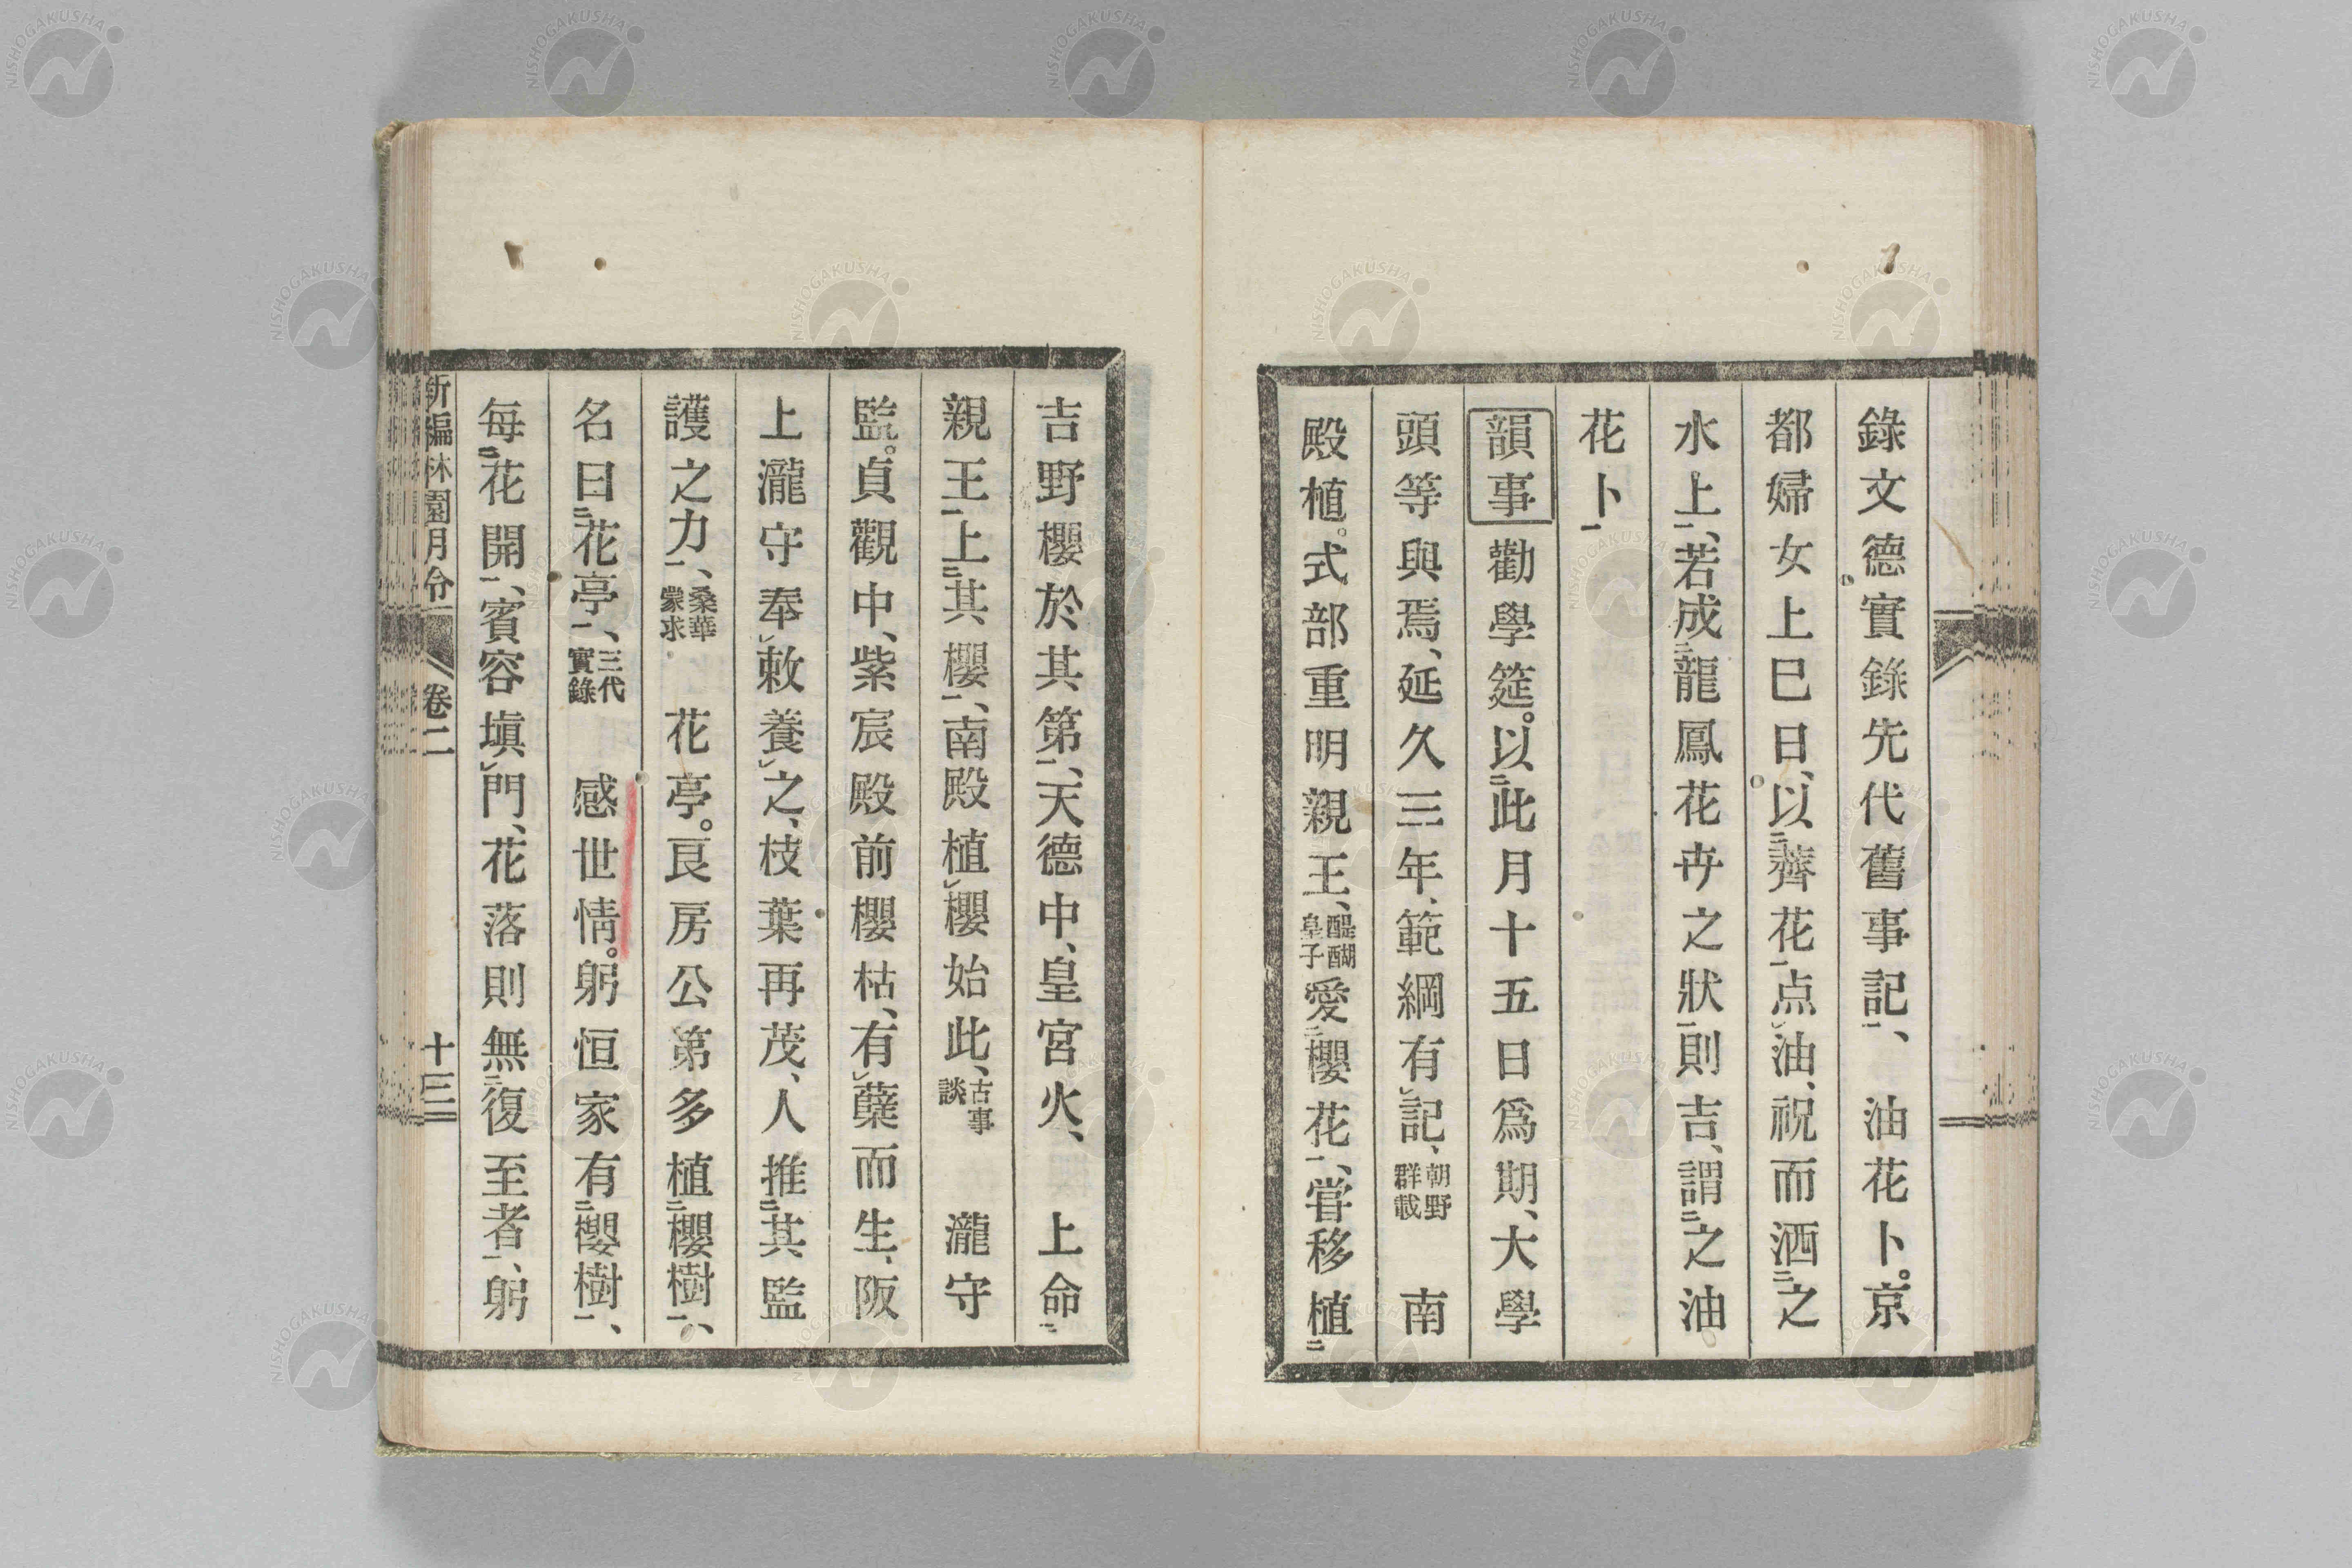 錄文德實錄先代舊事記、油花卜。京
都婦女上巳日、以薺花点油、祝而洒之
水上、若成龍鳳花卉之狀則吉、謂之油
花卜
韻事 勸學筵。以此月十五日爲期、大學
頭等與焉、延久三年、範綱有記、朝野群載 南
殿植。式部重明親王、醍醐皇子愛櫻花、嘗移植
吉野櫻於其第、天德中、皇宮火、上命
親王上其櫻、南殿植櫻始此、古事談 瀧守
監。貞觀中、紫宸殿前櫻枯、有蘖而生、阪
上瀧守奉敕養之、枝葉再茂、人推其監
護之力、桑華蒙求 花亭。良房公第多植櫻樹、
名曰花亭、三代實錄 感世情。躬恒家有櫻樹、
每花開、賓容塡門、花落則無復至者、躬
新編林園月令 卷二 十三
NISHOGAKUSHA